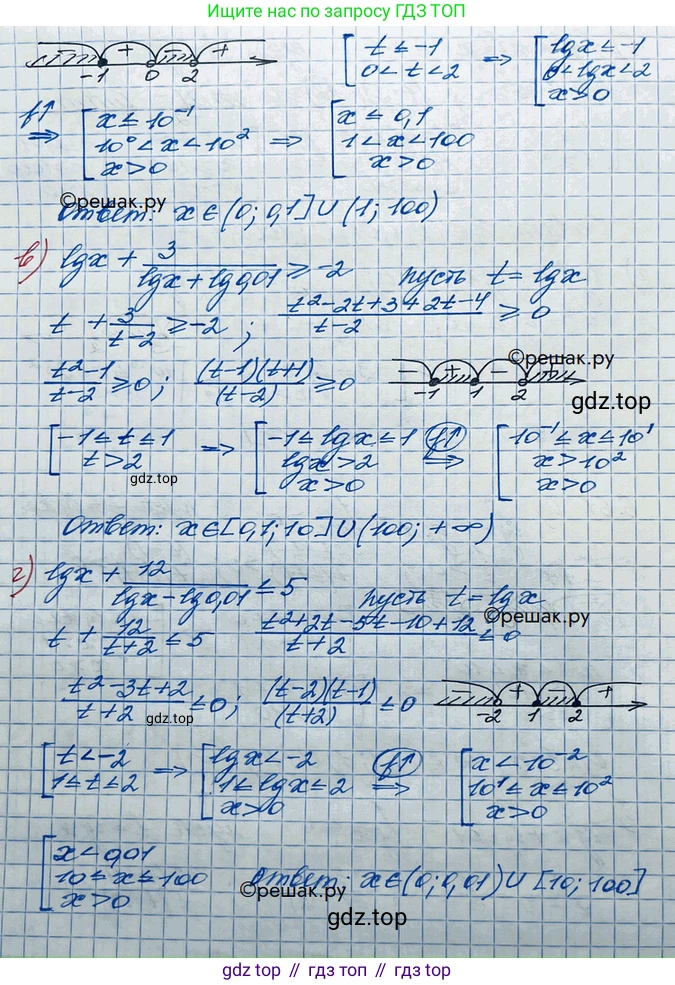 Ищите нас по запросу ГДЗ ТОП
- + - +
-1 0 2
[ t ≤ -1
0 < t < 2 ⇒ [ lgx ≤ -1
0 < lgx < 2
x > 0
f↑ ⇒ [ x ≤ 10⁻¹
10⁰ < x < 10²
x > 0 ⇒ [ x ≤ 0,1
1 < x < 100
x > 0
©решак.ру
Ответ: x ∈ (0; 0,1] ∪ (1; 100)
в) lgx + 3/(lgx + lg0,01) ≥ -2 пусть t = lgx
t + 3/(t-2) ≥ -2 ; (t²-2t+3+2t-4)/(t-2) ≥ 0
(t²-1)/(t-2) ≥ 0 ; ((t-1)(t+1))/(t-2) ≥ 0
- + - +
-1 1 2
©решак.ру
gdz.top
[ -1 ≤ t ≤ 1
t > 2 ⇒ [ -1 ≤ lgx ≤ 1
lgx > 2
x > 0 f↑ ⇒ [ 10⁻¹ ≤ x ≤ 10¹
x > 10²
x > 0
gdz.top
Ответ: x ∈ [0,1; 10] ∪ (100; +∞)
г) lgx + 12/(lgx - lg0,01) ≤ 5 пусть t = lgx
©решак.ру
t + 12/(t+2) ≤ 5 (t²+2t-5t-10+12)/(t+2) ≤ 0
(t²-3t+2)/(t+2) ≤ 0 ; ((t-2)(t-1))/(t+2) ≤ 0
- + - +
-2 1 2
gdz.top
[ t < -2
1 ≤ t ≤ 2 ⇒ [ lgx < -2
1 ≤ lgx ≤ 2
x > 0 f↑ ⇒ [ x < 10⁻²
10¹ ≤ x ≤ 10²
x > 0
[ x < 0,01
10 ≤ x ≤ 100
x > 0
Ответ: x ∈ (0; 0,01) ∪ [10; 100]
©решак.ру
gdz.top
gdz.top // гдз топ // gdz top // гдз.top